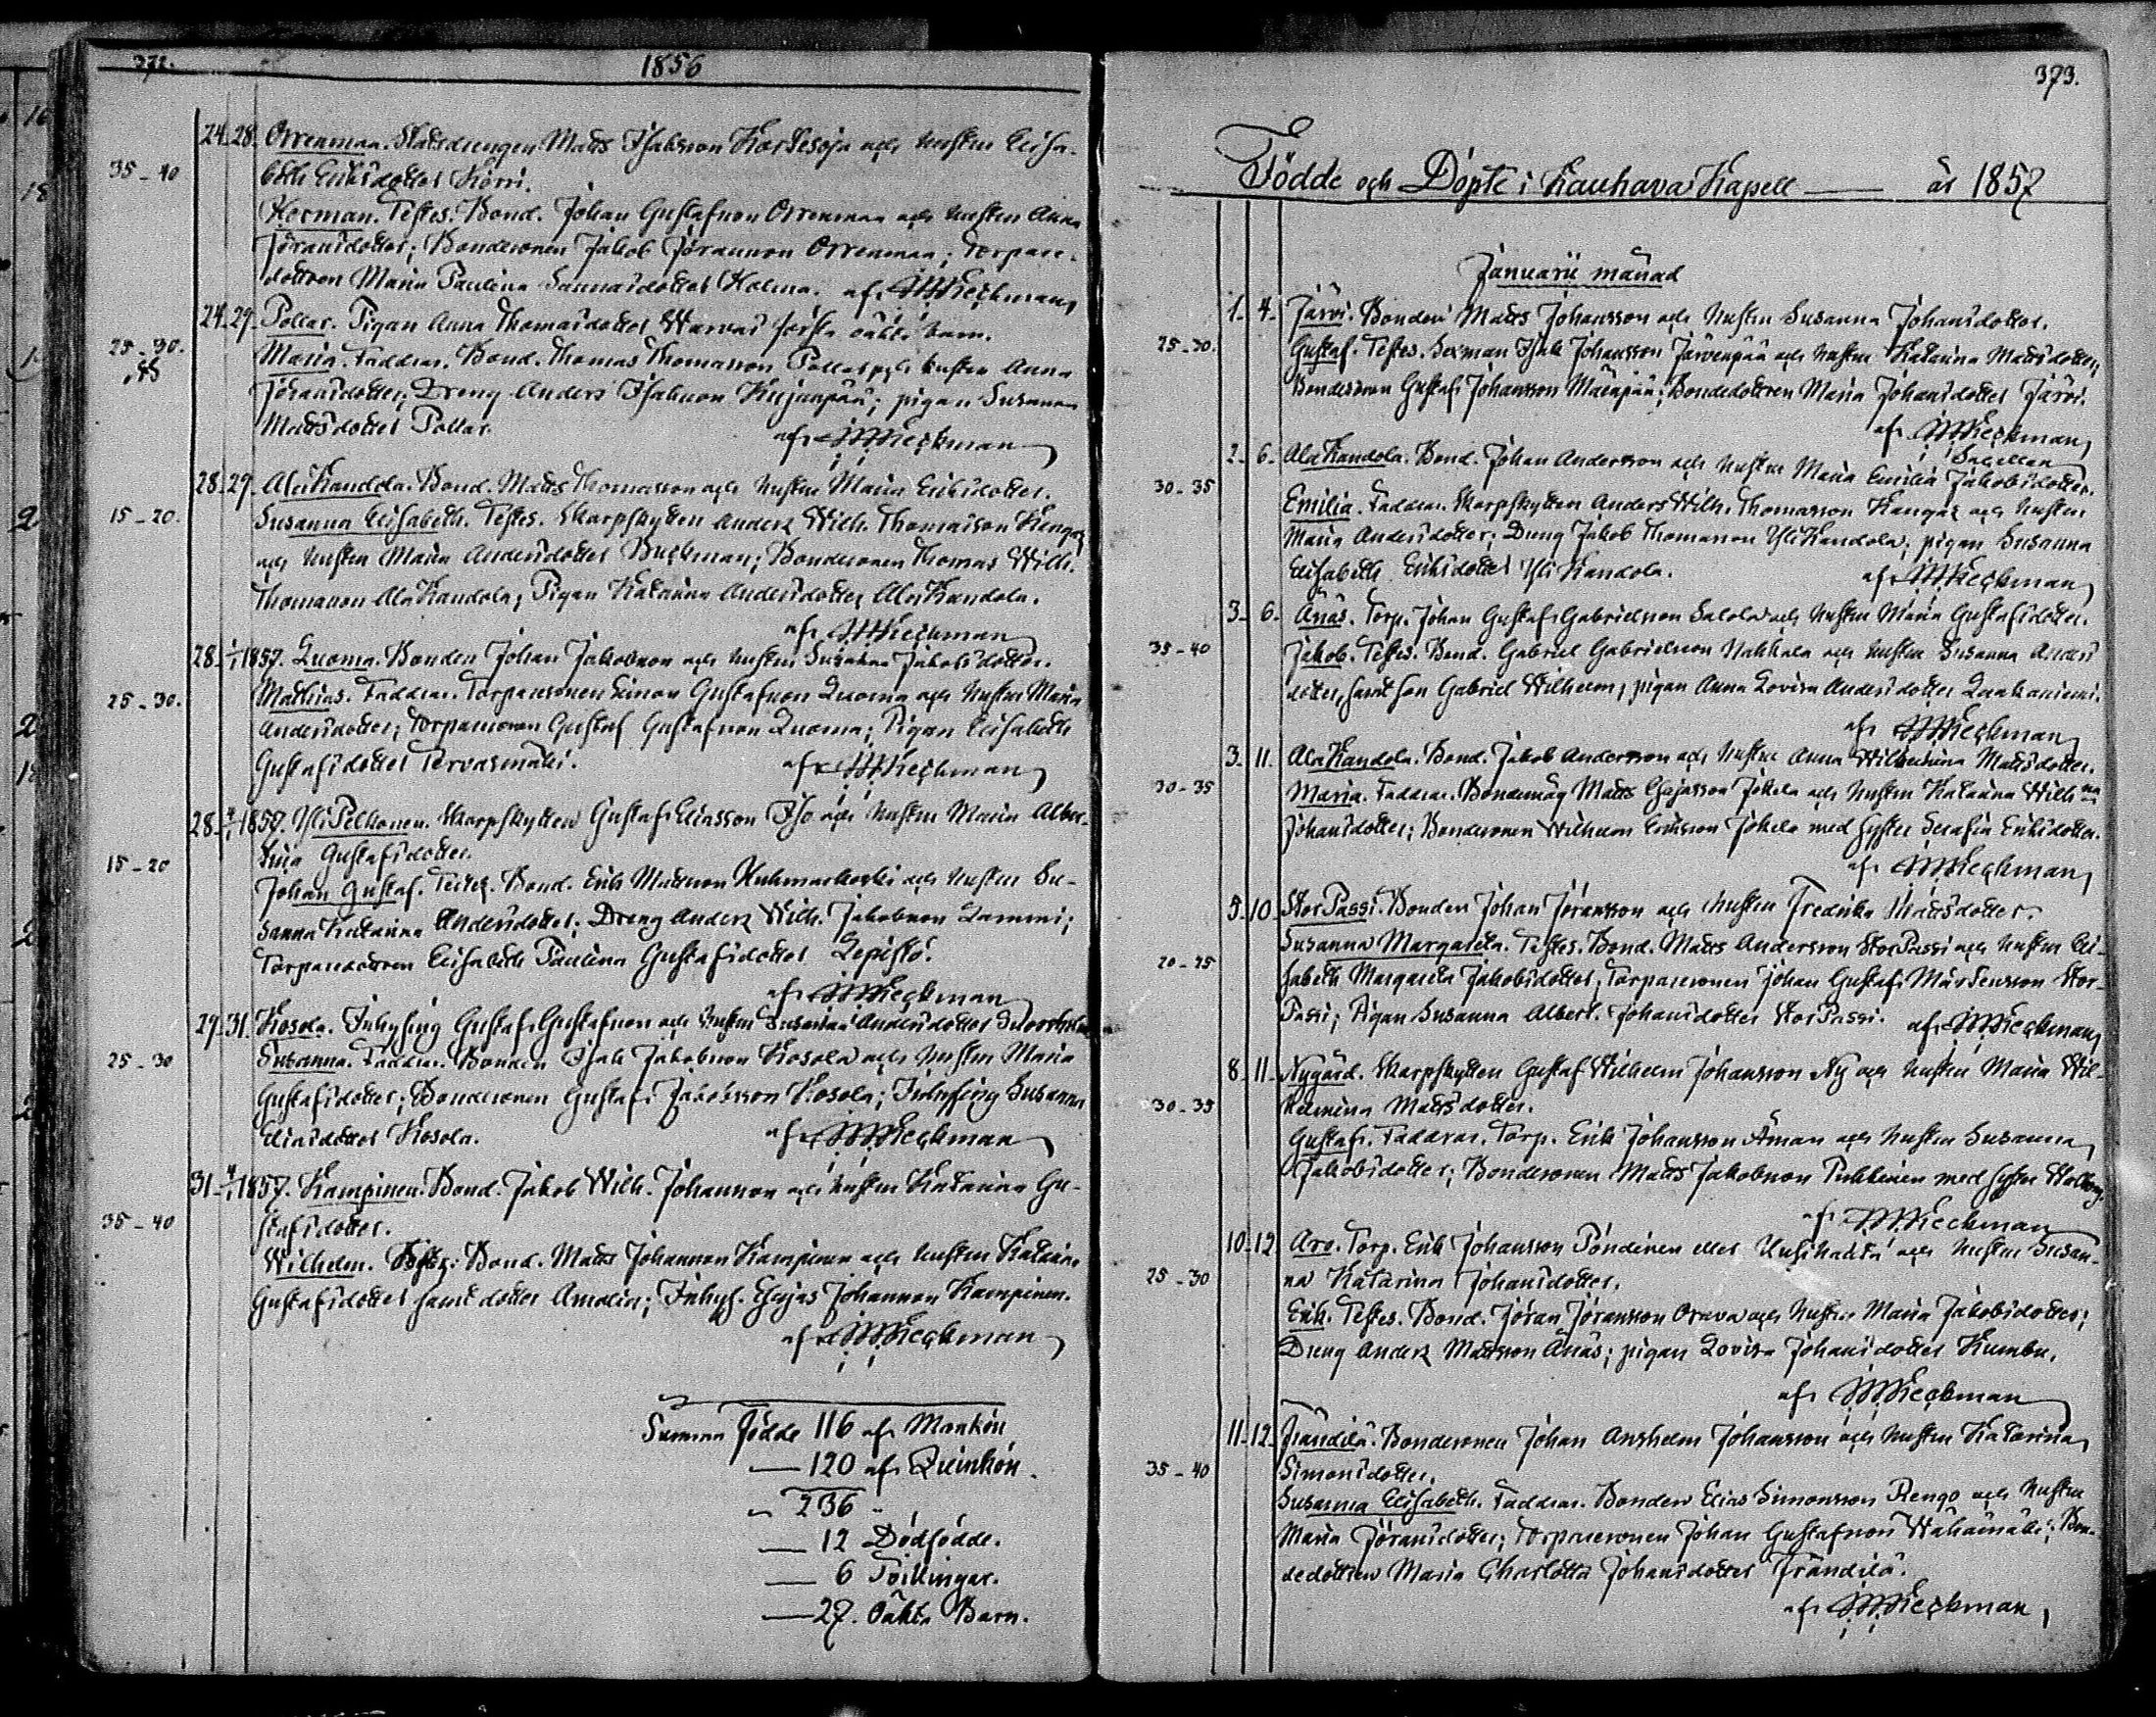 372.
1856
24. 28. Orrenmaa. Statsdrengen Matts Isaksson Kortesoja och hustru Elisa-
35-40
beth Eriksdotter Körri.
Herman. Testes: Bond. Johan Gustafsson Orrenmaa och hustru Anna
Jöransdotter; Bondesonen Jakob Jöransson Orrenmaa; Torpare-
dottren Maria Paulina Sannasdotter Holma. af: Kieckman
24. 29. Pollar. Pigan Anna Thomasdotter Warvas första oäkta barn.
25-30.
Maria. Faddrar. Bond. Thomas Thomasson Pollar och hustru Anna
Jöransdotter; Dreng Anders Isaksson Kujanpää; pigan Susanna
Mattsdotter Pollar.
af: Kieckman
28. 29. AlaKandola. Bond. Matts Thomasson och hustru Maria Eriksdotter.
15-20.
Susanna Elisabeth. Testes. Skarpskytten Anders Wilh. Thomasson Kangas
och hustru Maria Andersdotter Buckman; Bondesonen Thomas Wilh.
Thomasson AlaKandola; Pigan Katarina Andersdotter AlaKandola.
af: Kieckman
28. 1/1 1857. Luoma. Bonden Johan Jakobsson och hustru Susanna Jakobsdotter.
25-30.
Mathias. Faddrar. Torparesonen Simon Gustafsson Luoma och hustru Maria
Andersdotter; Torparesonen Gustaf Gustafsson Luoma; Pigan Elisabeth
Gustafsdotter Tervasmäki.
af: Kieckman
28. 4/1 1857. YliPelkonen. Skarpskytten Gustaf Eliasson Iso och hustru Maria Alber-
tina Gustafsdotter.
15-20
Johan Gustaf. Testes. Bond. Erik Mattsson Kuhmarkoski och hustru Su-
sanna Katarina Andersdotter; Dreng Anders Wilh. Jakobsson Lammi;
Torparedottren Elisabeth Paulina Gustafsdotter Lepistö.
af: Kieckman
29. 31. Kosola. Inhysing Gustaf Gustafsson och hustru Susanna Andersdotter
25-30
Susanna. Faddrar. Bonden Isak Jakobsson Kosola och hustru Maria
Gustafsdotter; Bondesonen Gustaf Jakobsson Kosola; Inhysing Susanna
Eliasdotter Kosola.
af: Kieckman
31. 4/1 1857. Kampinen. Bond. Jakob Wilh. Johansson och hustru Katarina Gu-
stafsdotter.
35-40
Wilhelm. Testes: Bond. Matts Johansson Kampinen och hustru Katarina
Gustafsdotter samt dotter Amalia; Inhys. Esajas Johansson Kampinen.
af: Kieckman
Summa födde 116 af Mankön
— 120 af Qvinkön.
236
— 12 Dödfödde.
— 6 Tvillingar.
— 27. Oäkta Barn.
373.
Födde och Döpte i Kauhava Kapell — år 1857
Januarii månad
1. 4. Järvi. Bonden Matts Johansson och hustru Susanna Johansdotter.
25-30.
Gustaf. Testes. Sexman Isak Johansson Järvenpää och hustru Katarina Mattsdotter;
Bondesonen Gustaf Johansson Mäenpää; Bondedottren Maria Johansdotter Järvi.
af Kieckman
2. 6. AlaKandola. Bond. Johan Andersson och hustru Maria Emilia Jakobsdotter.
30-35
Emilia. Faddrar. Skarpskytten Anders Wilh. Thomasson Kangas och hustru
Maria Andersdotter; Dreng Jakob Thomasson YliKandola; pigan Susanna
Elisabeth Eriksdotter YliKandola.
af: Kieckman
3. 6. Änäs. Torp. Johan Gustaf Gabrielsson Salola och hustru Maria Gustafsdotter.
35-40
Jakob. Testes. Bond. Gabriel Gabrielsson Nahkala och hustru Susanna Anders
dotter, samt son Gabriel Wilhelm; pigan Anna Lovisa Andersdotter Laakaniemi.
af Kieckman
3. 11. AlaKandola. Bond. Jakob Andersson och hustru Anna Wilhelmina Mattsdotter.
30-35
Maria. Faddrar. Bondemåg Matts Esajasson Jokela och hustru Katarina Wilhna
Johansdotter; Bondesonen Wilhelm Eriksson Jokela med syster Serafia Eriksdotter.
af Kieckman
5. 10. StorPassi. Bonden Johan Jöransson och hustru Fredrika Mattsdotter.
20-25
Susanna Margareta. Testes. Bond. Matts Andersson StorPassi och hustru Eli-
sabeth Margareta Jakobsdotter; Torparesonen Johan Gustaf Mårtensson Stor-
Passi; Pigan Susanna Albert. Johansdotter StorPassi. af: Kieckman
8. 11. Nygård. Skarpskytten Gustaf Wilhelm Johansson Ny och hustru Maria Wil-
helmina Mattsdotter.
30-35
Gustaf. Faddrar. Torp. Erik Johansson Åman och hustru Susanna
Jakobsdotter; Bondesonen Matts Jakobsson Pukkinen med syster
af Kieckman
10. 12. Aro. Torp. Erik Johansson Pöndinen eller Uusihauta och hustru Susan-
na Katarina Johansdotter.
25-30
Erik. Testes. Bond. Jöran Jöransson Orava och hustru Maria Jakobsdotter;
Dreng Anders Mattsson Änäs; pigan Lovisa Johansdotter Kumbu.
af: Kieckman
11. 12. Frändilä. Bondesonen Johan Anshelm Johansson och hustru Katarina
Simonsdotter.
35-40
Susanna Elisabeth. Faddrar. Bonden Elias Simonsson Rengo och hustru
Maria Jöransdotter; Torparesonen Johan Gustafsson Wähämäki; Bon-
dedottren Maria Charlotta Johansdotter Frändilä.
af: Kieckman